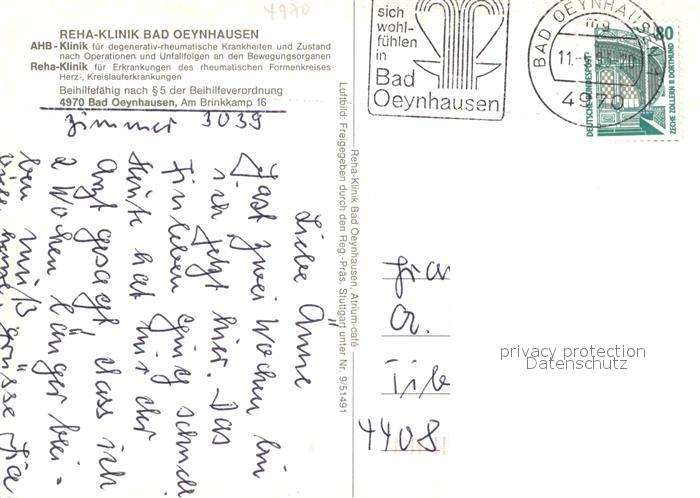 4970
REHA-KLINIK BAD OEYNHAUSEN
AHB-Klinik für degenerativ-rheumatische Krankheiten und Zustand
nach Operationen und Unfallfolgen an den Bewegungsorganen
Reha-Klinik für Erkrankungen des rheumatischen Formenkreises
Herz-, Kreislauferkrankungen
Beihilfefähig nach §5 der Beihilfeverordnung
4970 Bad Oeynhausen, Am Brinkkamp 16
Zimmer 3039
Liebe Änne
Fast zwei Wochen bin
ich jetzt hier. Das
Einleben ging schnell
Heute hat mir der
Arzt gesagt dass ich
2 Wochen länger blei-
ben muß
Grüsse
Reha-Klinik Bad Oeynhausen, Atrium-café
Luftbild: Freigegeben durch den Reg.-Präs. Stuttgart unter Nr. 9/51491
sich
wohl-
fühlen
in
Bad
Oeynhausen
BAD OEYNHAUSEN 1
mg
11.
-20
4970
80
DEUTSCHE BUNDESPOST
ZECHE ZOLLERN II DORTMUND
Frau
4408
privacy protection
Datenschutz